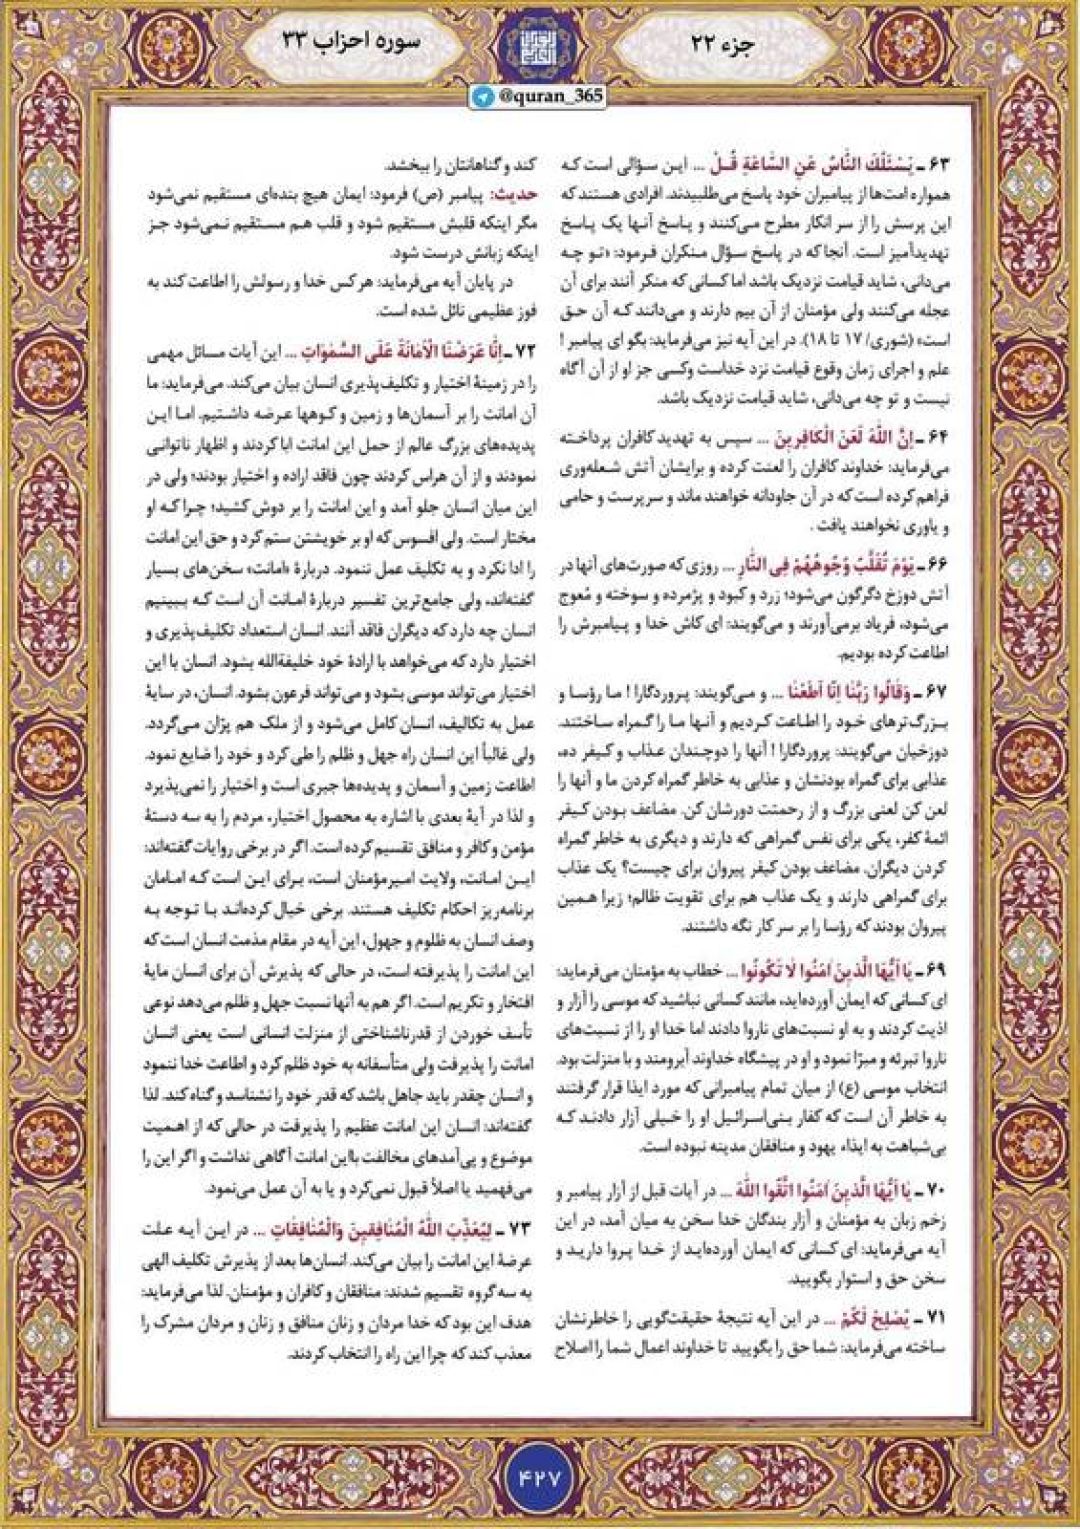 جزء ۲۲
سوره احزاب ۳۳
@quran_365
۶۳ ـ یَسْئَلُكَ النَّاسُ عَنِ السَّاعَةِ قُلْ ... این سؤالی است که
همواره امت‌ها از پیامبران خود پاسخ می‌طلبیدند. افرادی هستند که
این پرسش را از سر انکار مطرح می‌کنند و پاسخ آنها یک پاسخ
تهدیدآمیز است. آنجا که در پاسخ سؤال منکران فرمود: «تو چه
می‌دانی، شاید قیامت نزدیک باشد اما کسانی که منکر آنند برای آن
عجله می‌کنند ولی مؤمنان از آن بیم دارند و می‌دانند که آن حق
است» (شوری/ ۱۷ تا ۱۸). در این آیه نیز می‌فرماید: بگو ای پیامبر!
علم و اجرای زمان وقوع قیامت نزد خداست وکسی جز او از آن آگاه
نیست و تو چه می‌دانی، شاید قیامت نزدیک باشد.
۶۴ ـ إِنَّ اللَّهَ لَعَنَ الْکَافِرِینَ ... سپس به تهدید کافران پرداخته
می‌فرماید: خداوند کافران را لعنت کرده و برایشان آتش شعله‌وری
فراهم کرده است که در آن جاودانه خواهند ماند و سرپرست و حامی
و یاوری نخواهند یافت .
۶۶ ـ یَوْمَ تُقَلَّبُ وُجُوهُهُمْ فِی النَّارِ ... روزی که صورت‌های آنها در
آتش دوزخ دگرگون می‌شود؛ زرد و کبود و پژمرده و سوخته و مُعوج
می‌شود، فریاد برمی‌آورند و می‌گویند: ای کاش خدا و پیامبرش را
اطاعت کرده بودیم.
۶۷ ـ وَقَالُوا رَبَّنَا إِنَّا أَطَعْنَا ... و می‌گویند: پروردگارا! ما رؤسا و
بزرگ‌ترهای خود را اطاعت کردیم و آنها ما را گمراه ساختند.
دوزخیان می‌گویند: پروردگارا! آنها را دوچندان عذاب و کیفر ده،
عذابی برای گمراه بودنشان و عذابی به خاطر گمراه کردن ما و آنها را
لعن کن لعنی بزرگ و از رحمتت دورشان کن. مضاعف بودن کیفر
ائمهٔ کفر، یکی برای نفس گمراهی که دارند و دیگری به خاطر گمراه
کردن دیگران. مضاعف بودن کیفر پیروان برای چیست؟ یک عذاب
برای گمراهی دارند و یک عذاب هم برای تقویت ظالم؛ زیرا همین
پیروان بودند که رؤسا را بر سر کار نگه داشتند.
۶۹ ـ یَا أَیُّهَا الَّذِینَ آمَنُوا لَا تَکُونُوا ... خطاب به مؤمنان می‌فرماید:
ای کسانی که ایمان آورده‌اید، مانند کسانی نباشید که موسی را آزار و
اذیت کردند و به او نسبت‌های ناروا دادند اما خدا او را از نسبت‌های
ناروا تبرئه و مبرّا نمود و او در پیشگاه خداوند آبرومند و با منزلت بود.
انتخاب موسی (ع) از میان تمام پیامبرانی که مورد ایذا قرار گرفتند
به خاطر آن است که کفار بنی‌اسرائیل او را خیلی آزار دادند که
بی‌شباهت به ایذاء یهود و منافقان مدینه نبوده است.
۷۰ ـ یَا أَیُّهَا الَّذِینَ آمَنُوا اتَّقُوا اللَّهَ ... در آیات قبل از آزار پیامبر و
زخم زبان به مؤمنان و آزار بندگان خدا سخن به میان آمد، در این
آیه می‌فرماید: ای کسانی که ایمان آورده‌اید از خدا پروا دارید و
سخن حق و استوار بگویید.
۷۱ ـ یُصْلِحْ لَکُمْ ... در این آیه نتیجهٔ حقیقت‌گویی را خاطرنشان
ساخته می‌فرماید: شما حق را بگویید تا خداوند اعمال شما را اصلاح
کند و گناهانتان را ببخشد.
حدیث: پیامبر (ص) فرمود: ایمان هیچ بنده‌ای مستقیم نمی‌شود
مگر اینکه قلبش مستقیم شود و قلب هم مستقیم نمی‌شود جز
اینکه زبانش درست شود.
در پایان آیه می‌فرماید: هرکس خدا و رسولش را اطاعت کند به
فوز عظیمی نائل شده است.
۷۲ ـ إِنَّا عَرَضْنَا الْأَمَانَةَ عَلَی السَّمٰوَاتِ ... این آیات مسائل مهمی
را در زمینهٔ اختیار و تکلیف‌پذیری انسان بیان می‌کند. می‌فرماید: ما
آن امانت را بر آسمان‌ها و زمین و کوهها عرضه داشتیم. اما این
پدیده‌های بزرگ عالم از حمل این امانت ابا کردند و اظهار ناتوانی
نمودند و از آن هراس کردند چون فاقد اراده و اختیار بودند؛ ولی در
این میان انسان جلو آمد و این امانت را بر دوش کشید؛ چرا که او
مختار است. ولی افسوس که او بر خویشتن ستم کرد و حق این امانت
را ادا نکرد و به تکلیف عمل ننمود. دربارهٔ «امانت» سخن‌های بسیار
گفته‌اند، ولی جامع‌ترین تفسیر دربارهٔ امانت آن است که ببینیم
انسان چه دارد که دیگران فاقد آنند. انسان استعداد تکلیف‌پذیری و
اختیار دارد که می‌خواهد با ارادهٔ خود خلیفة‌الله بشود. انسان با این
اختیار می‌تواند موسی بشود و می‌تواند فرعون بشود. انسان، در سایهٔ
عمل به تکالیف، انسان کامل می‌شود و از ملک هم پرّان می‌گردد.
ولی غالباً این انسان راه جهل و ظلم را طی کرد و خود را ضایع نمود.
اطاعت زمین و آسمان و پدیده‌ها جبری است و اختیار را نمی‌پذیرد
و لذا در آیهٔ بعدی با اشاره به محصول اختیار، مردم را به سه دستهٔ
مؤمن و کافر و منافق تقسیم کرده است. اگر در برخی روایات گفته‌اند:
این امانت، ولایت امیرمؤمنان است، برای این است که امامان
برنامه‌ریز احکام تکلیف هستند. برخی خیال کرده‌اند با توجه به
وصف انسان به ظلوم و جهول، این آیه در مقام مذمت انسان است که
این امانت را پذیرفته است، در حالی که پذیرش آن برای انسان مایهٔ
افتخار و تکریم است. اگر هم به آنها نسبت جهل و ظلم می‌دهد نوعی
تأسف خوردن از قدرناشناختی از منزلت انسانی است یعنی انسان
امانت را پذیرفت ولی متأسفانه به خود ظلم کرد و اطاعت خدا ننمود
و انسان چقدر باید جاهل باشد که قدر خود را نشناسد و گناه کند. لذا
گفته‌اند: انسان این امانت عظیم را پذیرفت در حالی که از اهمیت
موضوع و پی‌آمدهای مخالفت بااین امانت آگاهی نداشت و اگر این را
می‌فهمید یا اصلاً قبول نمی‌کرد و یا به آن عمل می‌نمود.
۷۳ ـ لِیُعَذِّبَ اللَّهُ الْمُنَافِقِینَ وَالْمُنَافِقَاتِ ... در این آیه علت
عرضهٔ این امانت را بیان می‌کند. انسان‌ها بعد از پذیرش تکلیف الهی
به سه گروه تقسیم شدند: منافقان و کافران و مؤمنان. لذا می‌فرماید:
هدف این بود که خدا مردان و زنان منافق و زنان و مردان مشرک را
معذب کند که چرا این راه را انتخاب کردند.
۴۲۷